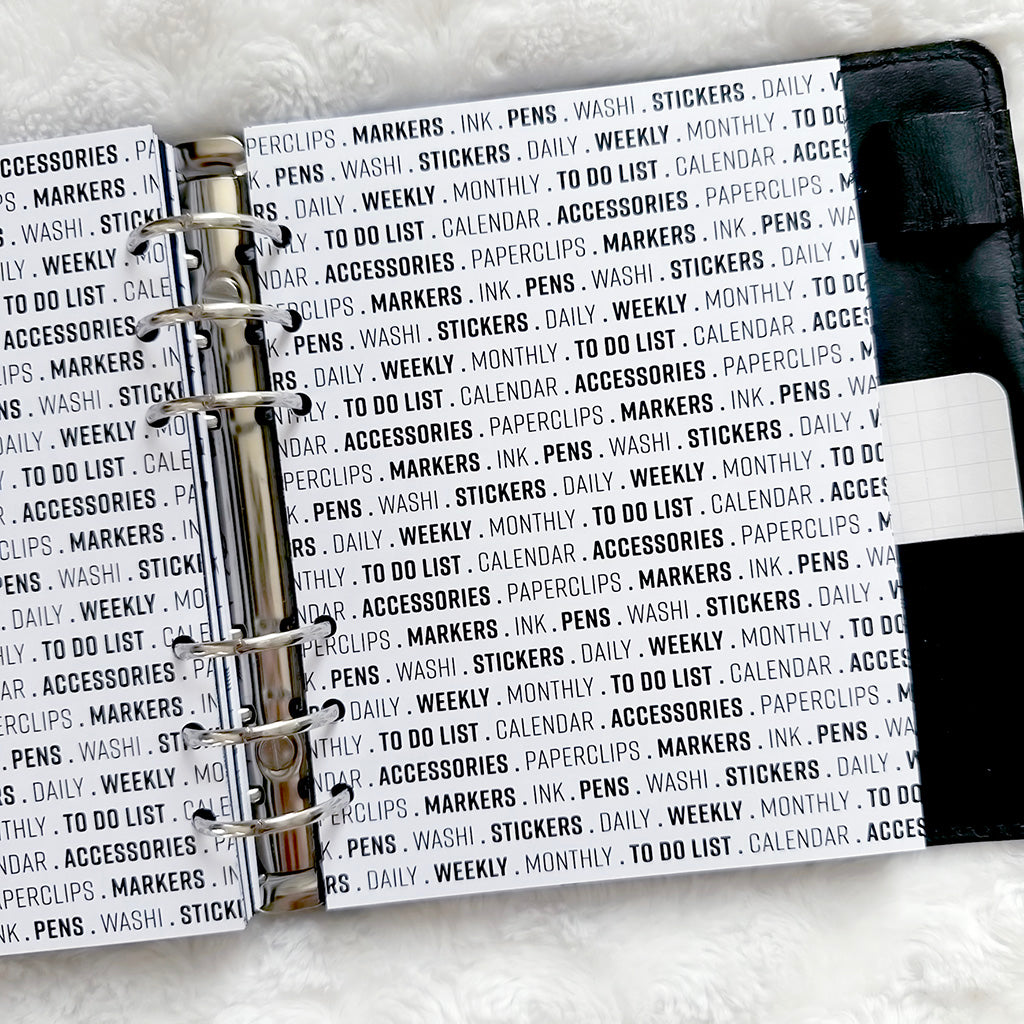 CCESSORIES . PA
PS . MARKERS . IN
S . WASHI . STICK
ILY . WEEKLY . MO
TO DO LIST . CALE
ACCESSORIES
IPS . MARKERS . IN
NS . WASHI . STICK
DAILY . WEEKLY . MO
Y . TO DO LIST . CALE
R . ACCESSORIES . PA
CLIPS . MARKERS . IN
PENS . WASHI . STICK
. DAILY . WEEKLY . MO
HLY . TO DO LIST . CALE
AR . ACCESSORIES . PA
ERCLIPS . MARKERS . IN
. PENS . WASHI . ST
RS . DAILY . WEEKLY . MO
THLY . TO DO LIST . CALE
NDAR . ACCESSORIES . PA
APERCLIPS . MARKERS . IN
NK . PENS . WASHI . STICK
PERCLIPS . MARKERS . INK . PENS . WASHI . STICKERS . DAILY . W
K . PENS . WASHI . STICKERS . DAILY . WEEKLY . MONTHLY . TO DO
RS . DAILY . WEEKLY . MONTHLY . TO DO LIST . CALENDAR . ACCES
NTHLY . TO DO LIST . CALENDAR . ACCESSORIES . PAPERCLIPS . M
NDAR . ACCESSORIES . PAPERCLIPS . MARKERS . INK . PENS . WA
PERCLIPS . MARKERS . INK . PENS . WASHI . STICKERS . DAILY . W
K . PENS . WASHI . STICKERS . DAILY . WEEKLY . MONTHLY . TO DO
RS . DAILY . WEEKLY . MONTHLY . TO DO LIST . CALENDAR . ACCES
Y . TO DO LIST . CALENDAR . ACCESSORIES . PAPERCLIPS . M
NDAR . ACCESSORIES . PAPERCLIPS . MARKERS . INK . PENS . WA
PERCLIPS . MARKERS . INK . PENS . WASHI . STICKERS . DAILY . W
K . PENS . WASHI . STICKERS . DAILY . WEEKLY . MONTHLY . TO DO
RS . DAILY . WEEKLY . MONTHLY . TO DO LIST . CALENDAR . ACCES
NTHLY . TO DO LIST . CALENDAR . ACCESSORIES . PAPERCLIPS . M
NDAR . ACCESSORIES . PAPERCLIPS . MARKERS . INK . PENS . WA
ERCLIPS . MARKERS . INK . PENS . WASHI . STICKERS . DAILY . W
K . PENS . WASHI . STICKERS . DAILY . WEEKLY . MONTHLY . TO DO
DAILY . WEEKLY . MONTHLY . TO DO LIST . CALENDAR . ACCES
NTHLY . TO DO LIST . CALENDAR . ACCESSORIES . PAPERCLIPS . M
NDAR . ACCESSORIES . PAPERCLIPS . MARKERS . INK . PENS . WA
ERCLIPS . MARKERS . INK . PENS . WASHI . STICKERS . DAILY . W
K . PENS . WASHI . STICKERS . DAILY . WEEKLY . MONTHLY . TO DO
RS . DAILY . WEEKLY . MONTHLY . TO DO LIST . CALENDAR . ACCES